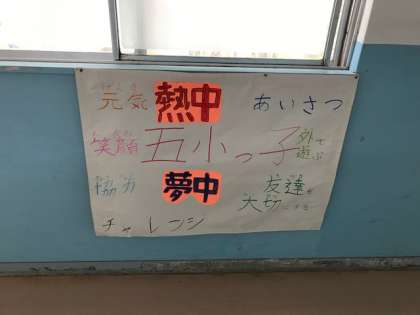 元気 熱中 あいさつ
笑顔 五小っ子 外で遊ぶ
協力 夢中 友達を大切にする
チャレンジ